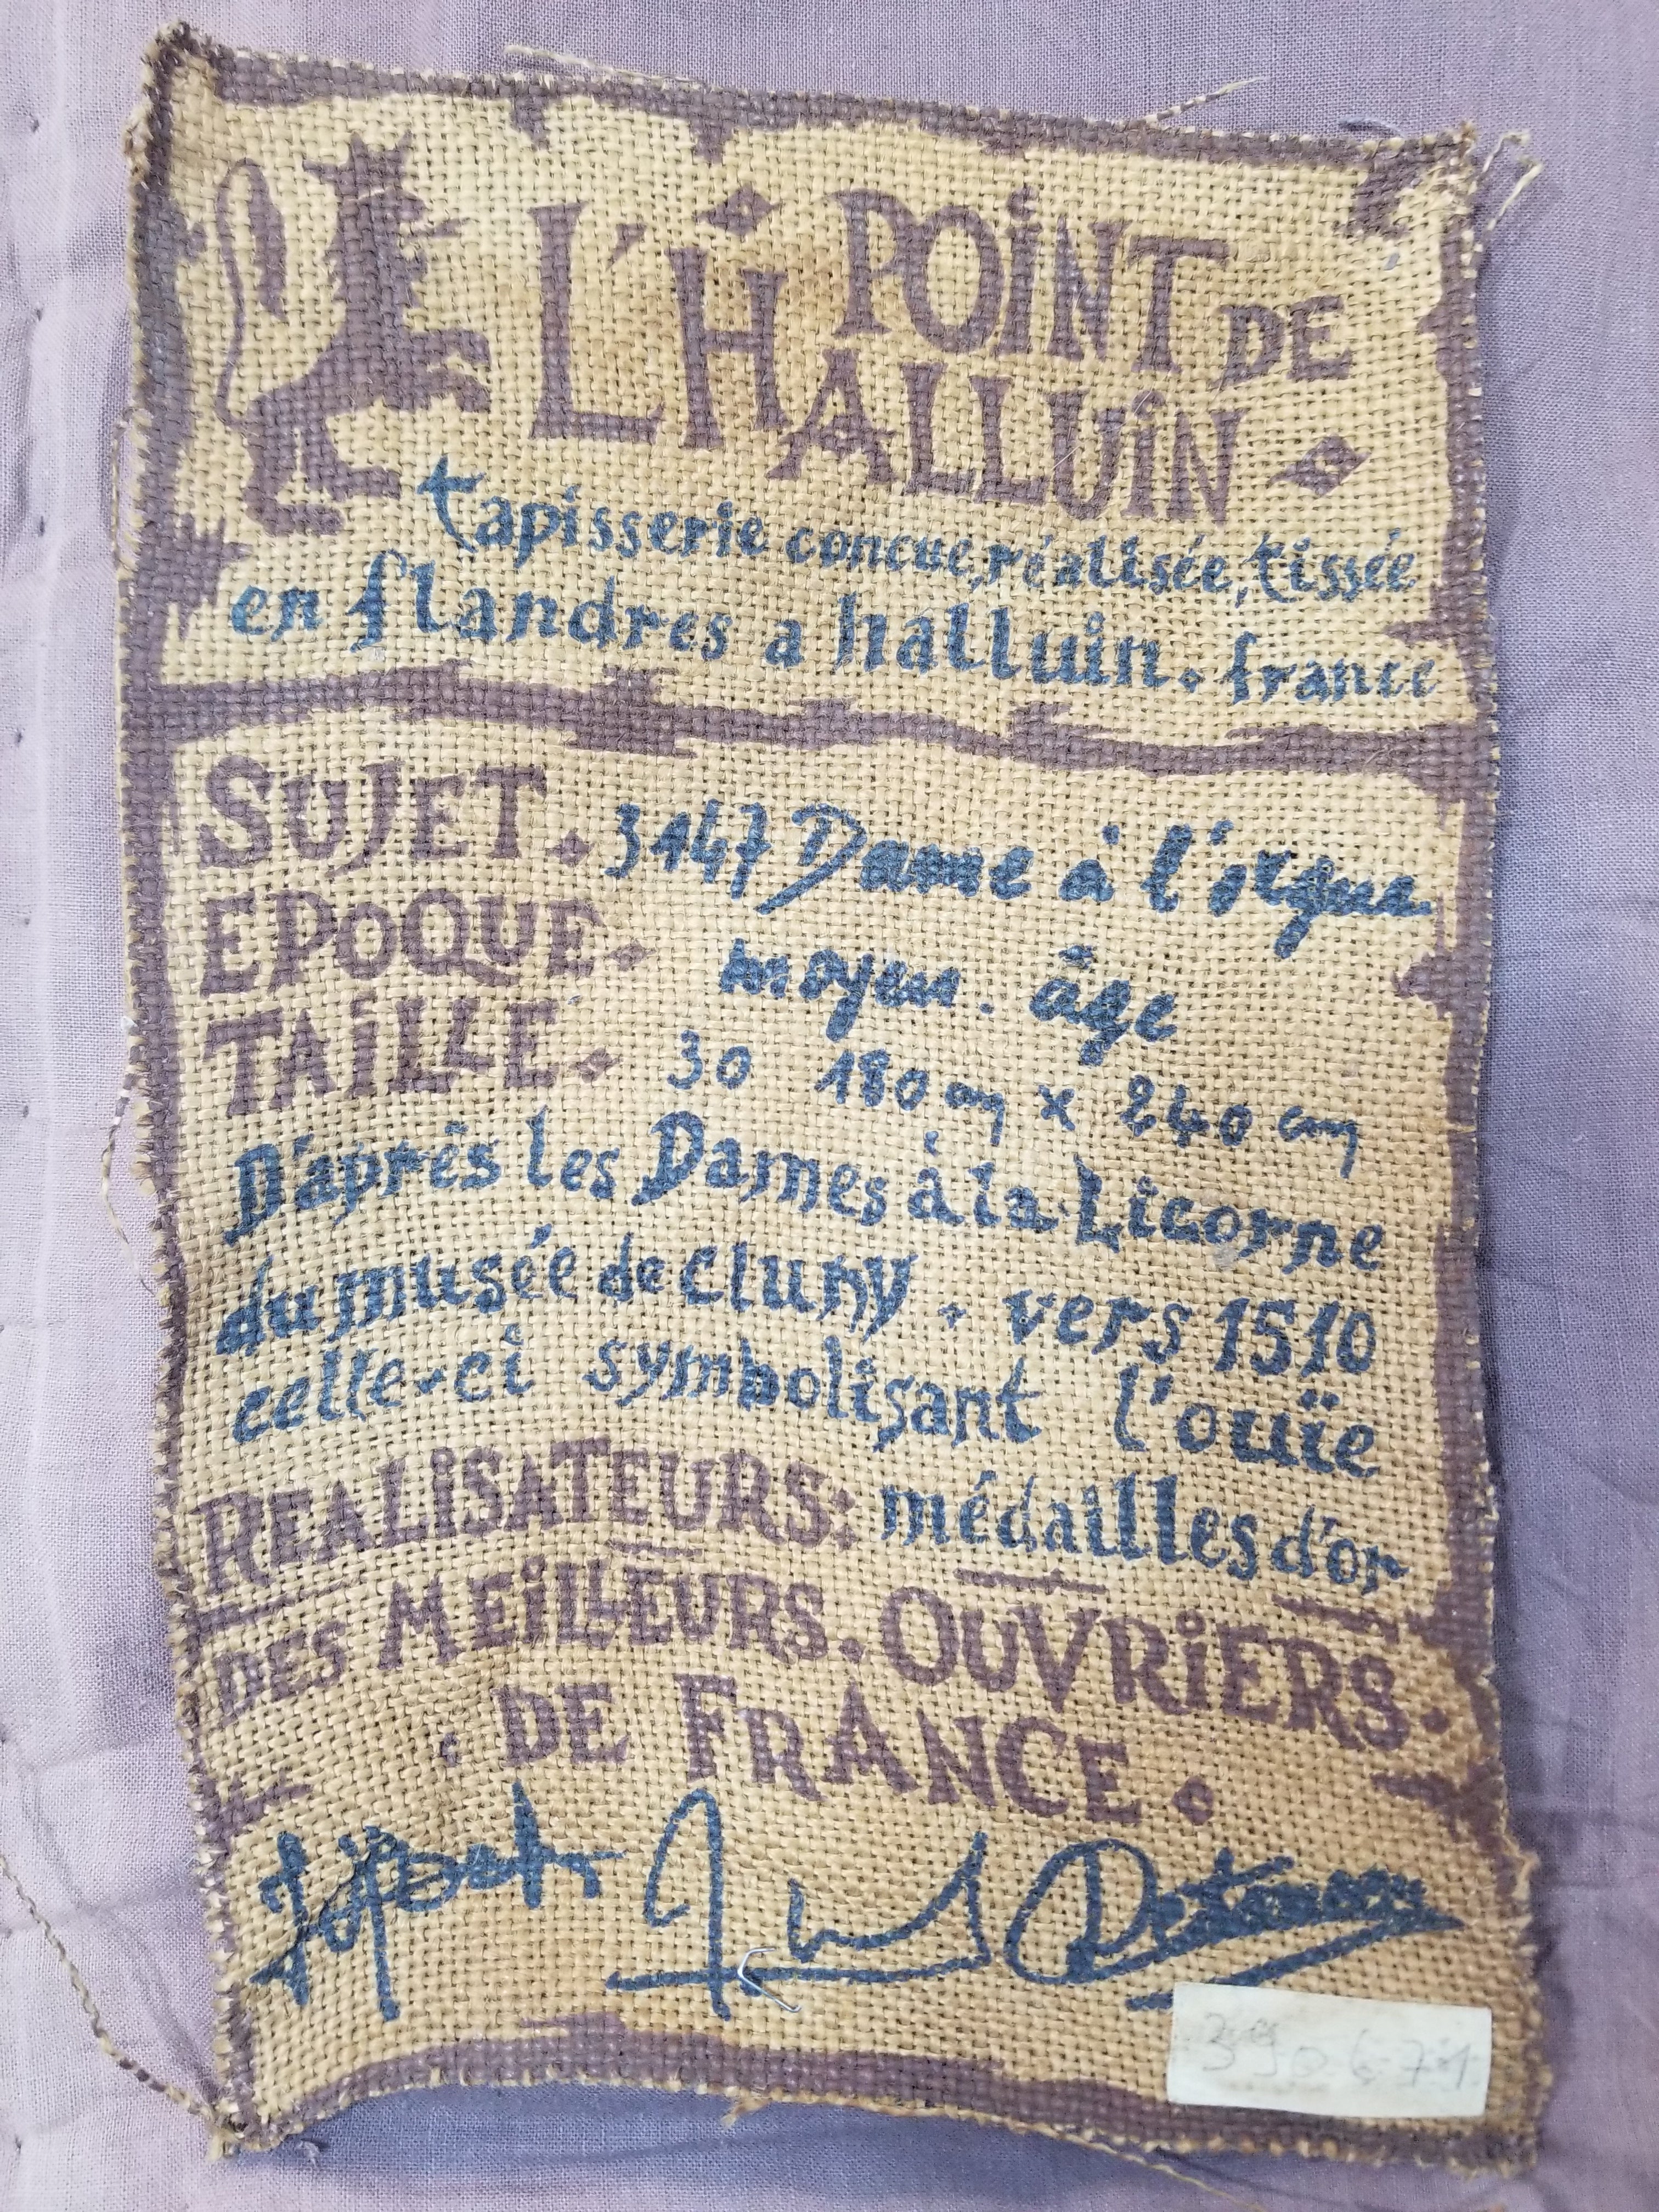 L'H POINT DE
HALLUIN
tapisserie concue, réalisée, tissée
en flandres a halluin. france
SUJET. 3147 Dame à l'orgue
EPOQUE. moyen. âge
TAILLE. 30 180 cm x 240 cm
D'après les Dames à la Licorne
du musée de Cluny. vers 1510
celle-ci symbolisant l'ouïe
REALISATEURS: médailles d'or
DES MEILLEURS. OUVRIERS.
. DE FRANCE.
390671